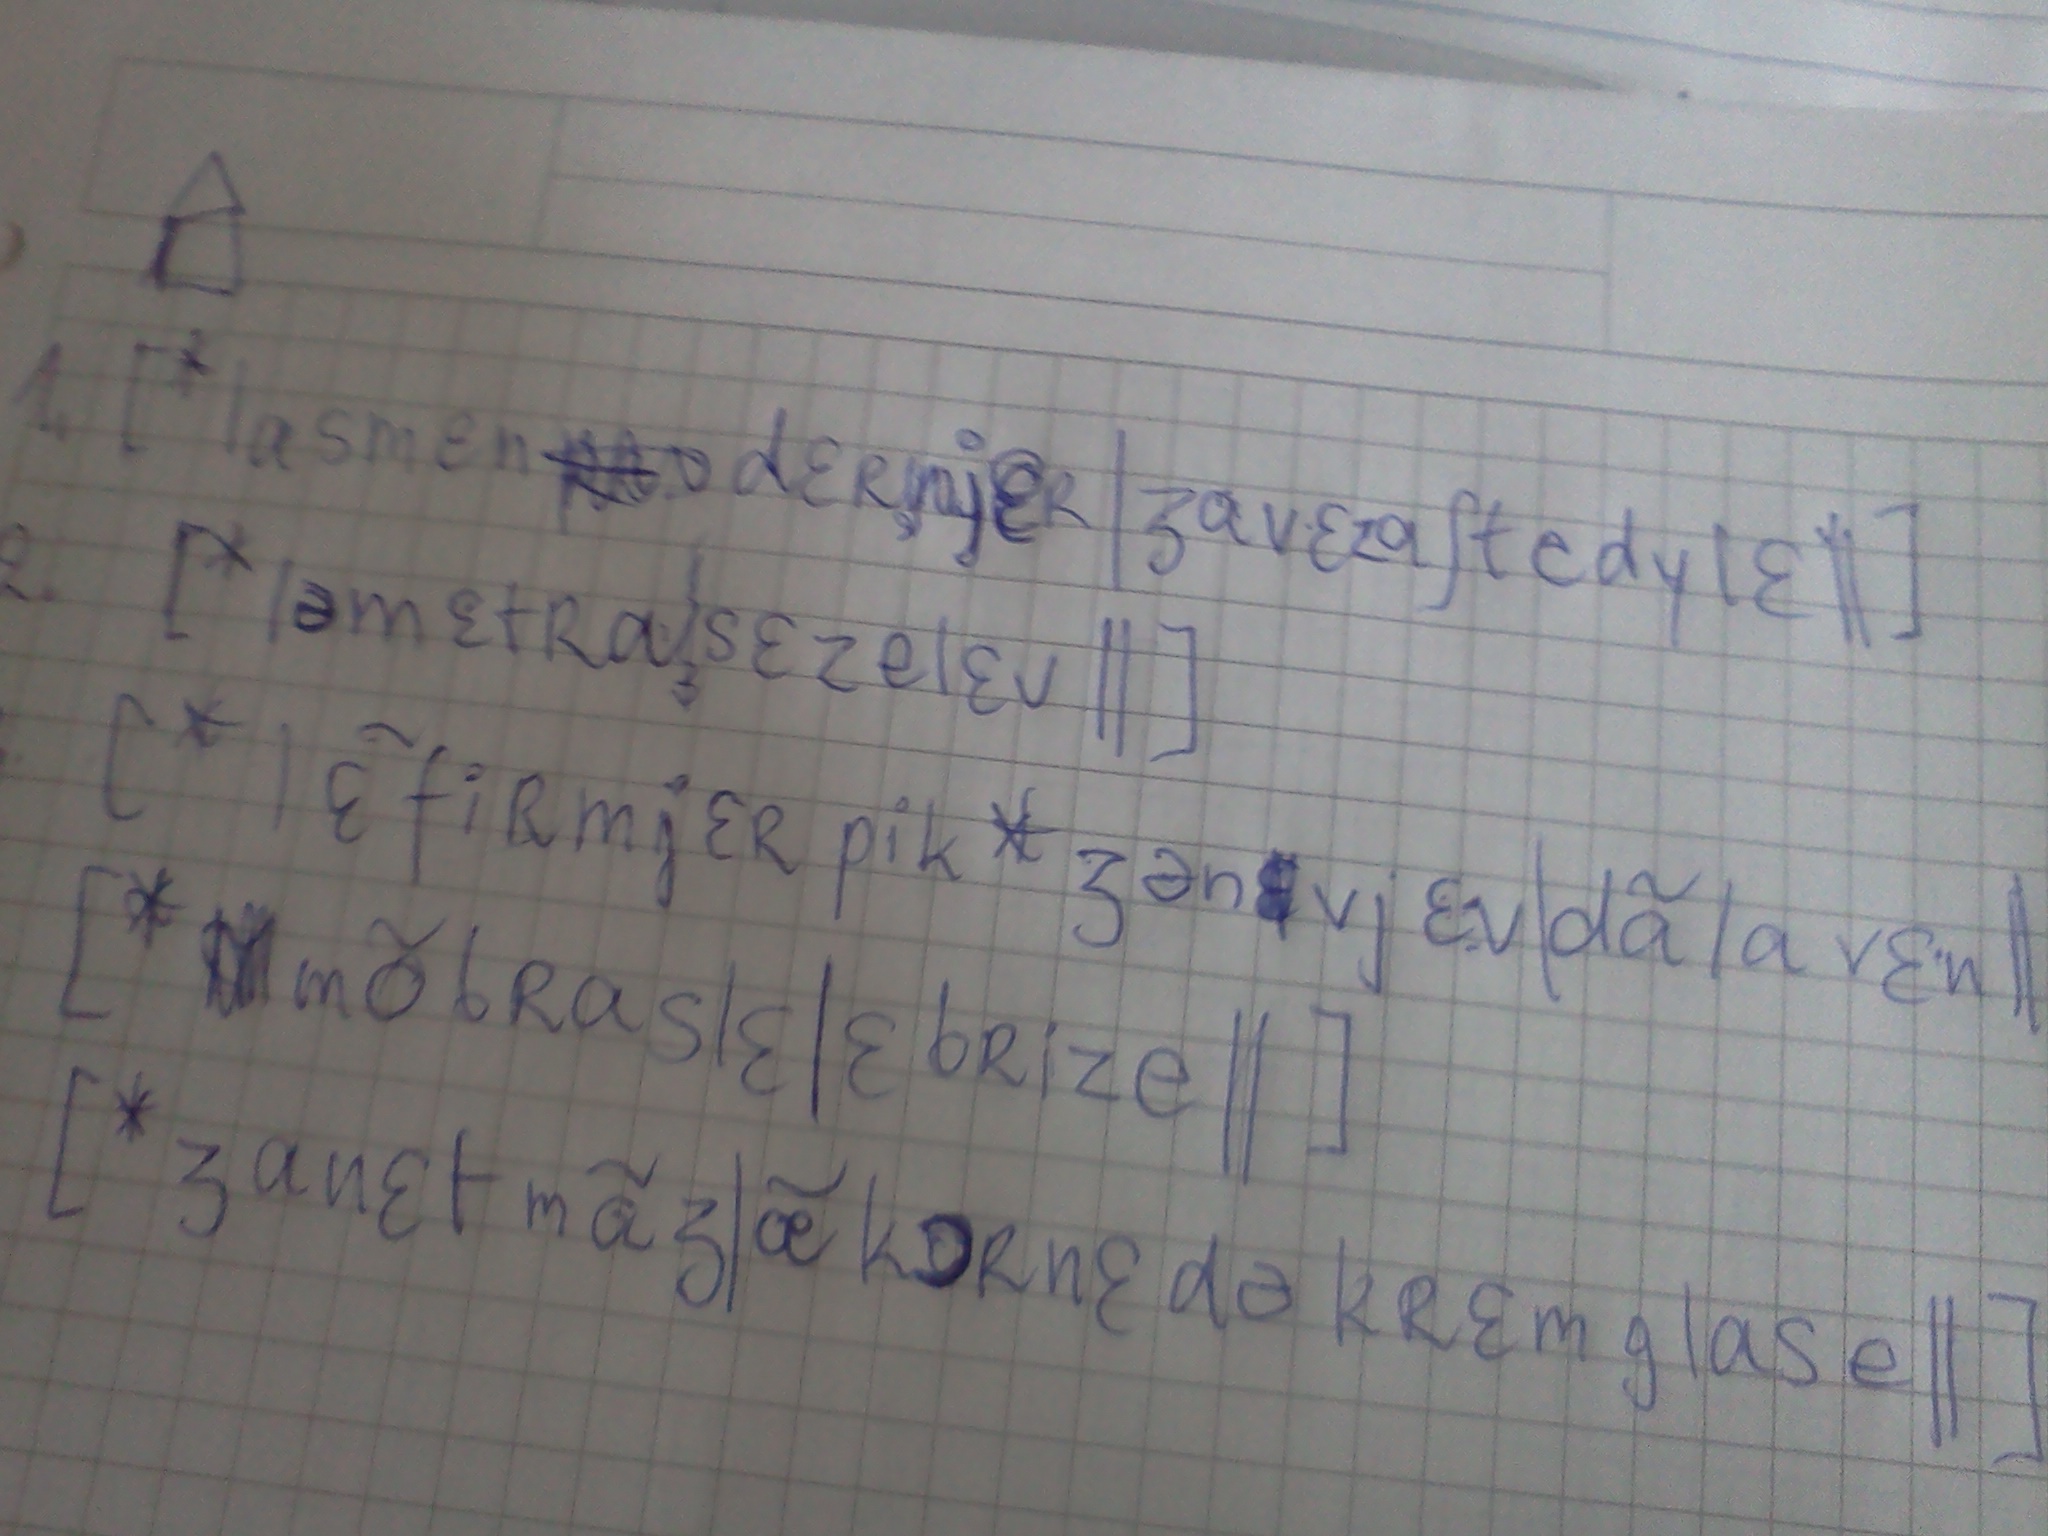 1. [*lasmɛn dɛRnjɛR|ʒavɛzaʃtedylɛ||]
2. [*ləmɛtRa sɛzelɛv||]
[*lɛ̃fiRmjɛR pik*ʒənvjɛv|dãlavɛn||
[* mõbRaslɛ|ɛbRize||]
[*ʒanɛtmãʒ|œ̃kɔRnɛdəkRɛmglase||]